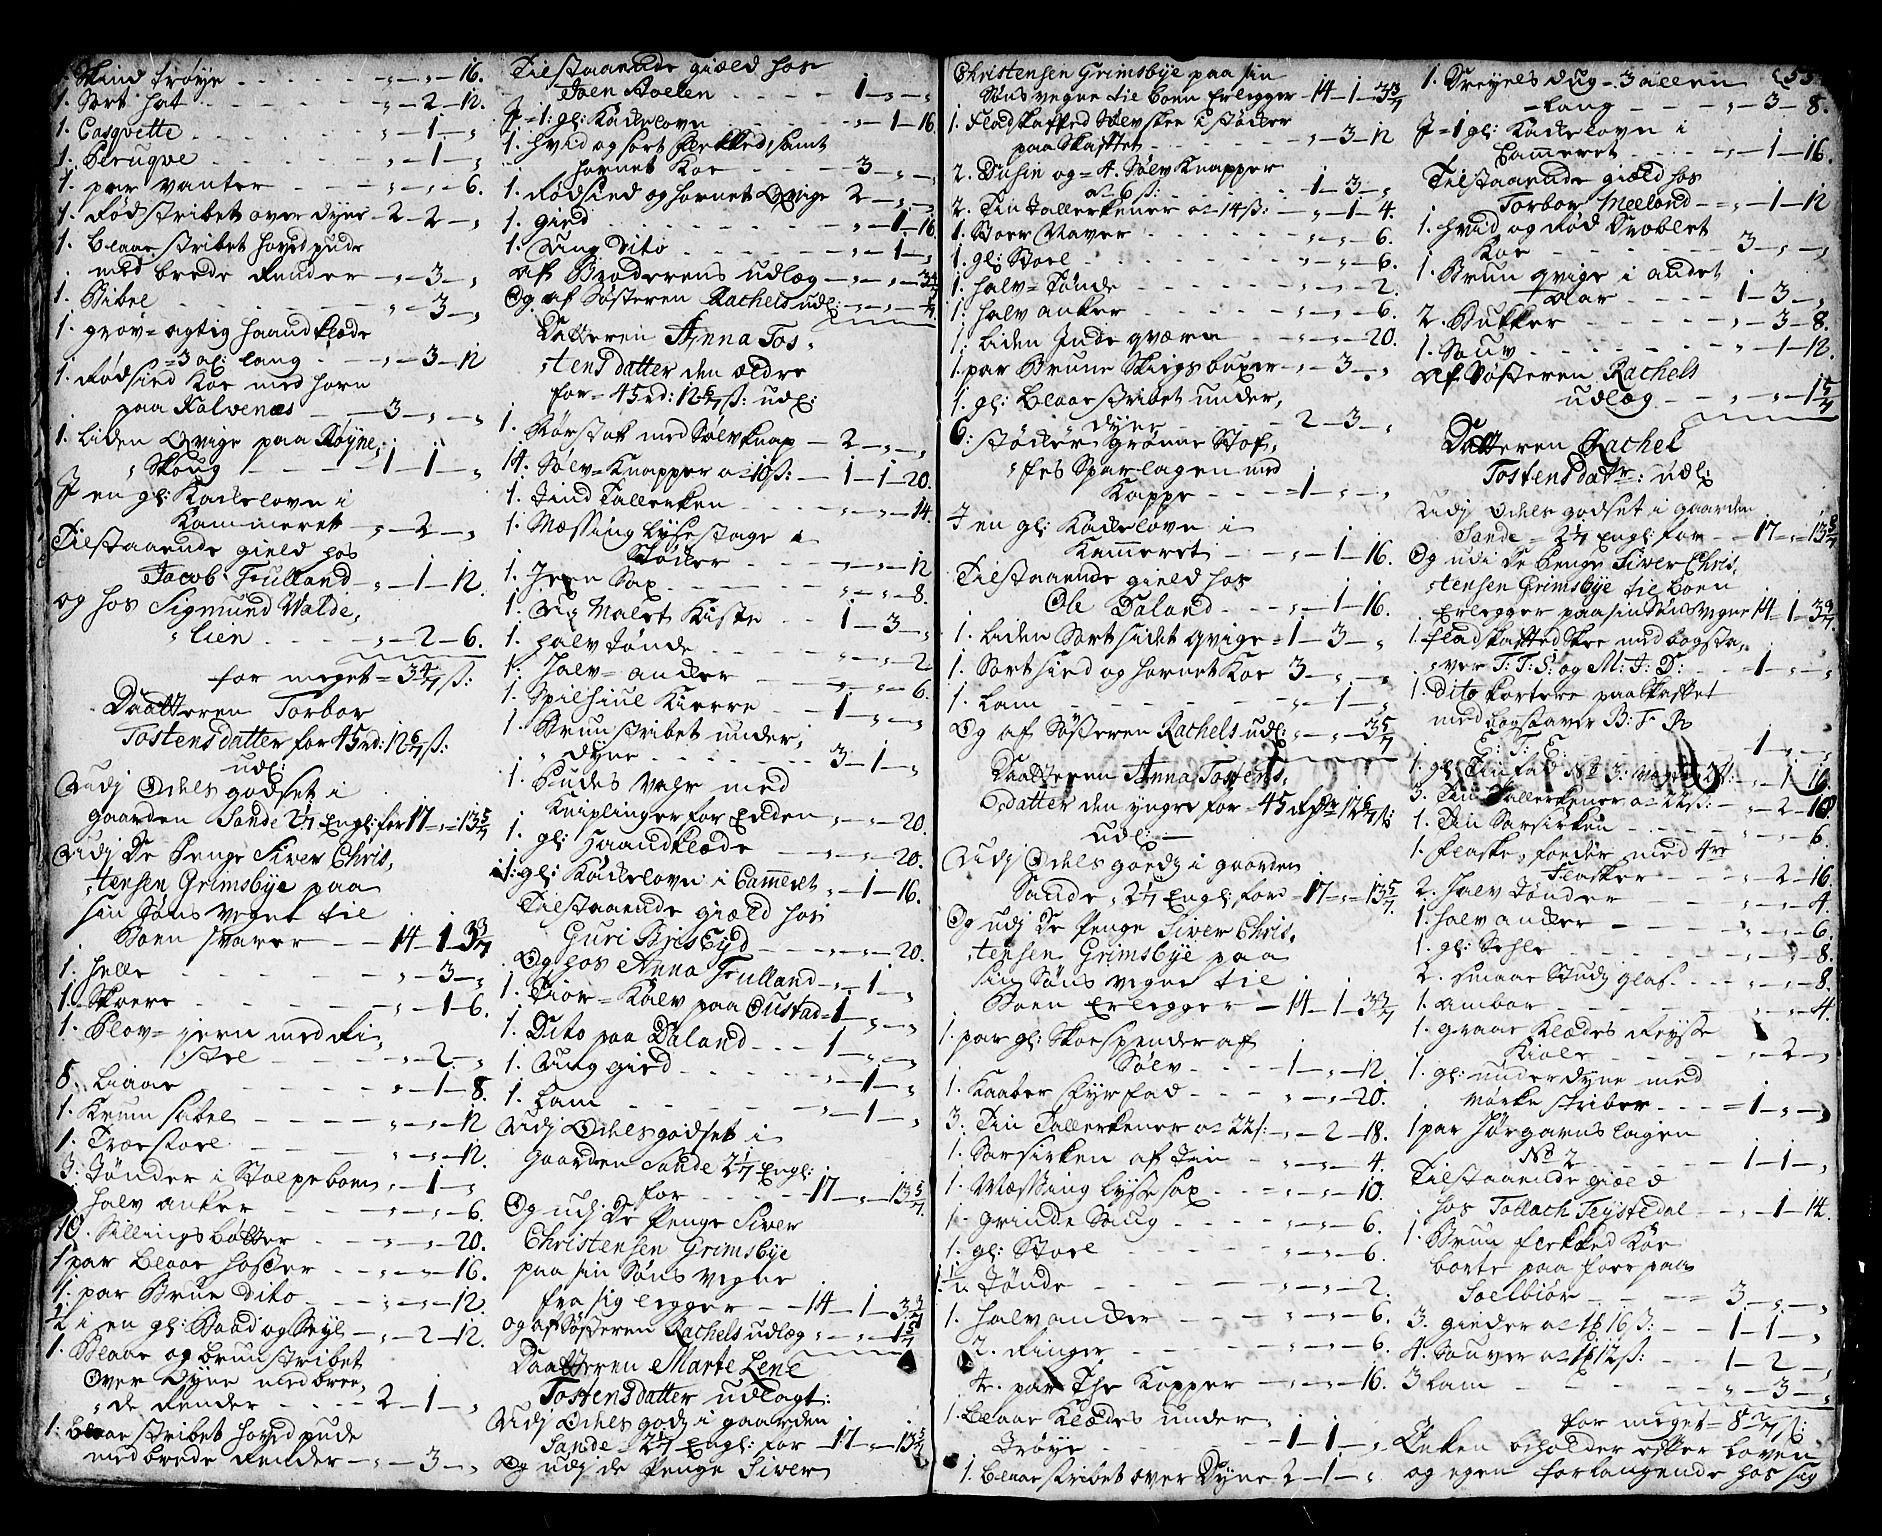 1. Skind trøye - - „ - „ - 16.
1. Sort hat - - „ - 2 - 12.
1. Casqvette - - „ - 1 - „
1. Peruqve - - „ - 1 - „
1. par vanter - - „ - „ - 6.
1. Rødstribet over dyne - 2 - 2 - „
1. blaae stribet hoved pude
med brede Render - „ - 3 - „
1. Bibel - - „ - 3 - „
1. grov-agtig haandklæde
3 al: lang - „ - 3 - 12
1. Rødsied Koe med horn
paa Kalvenæs - 3 - „ - „
1. liden Qvige paa Røyne
Skoug - - 1 - 1 - „
J en gl: Kackelovn i
Kammeret - „ - 2 - „
Tilstaaende gield hos
Jacob Frulland - „ - 1 - 12.
og hos Sigmund Walde
lien - - „ - 2 - 6.
for meget = 3 4/7 ß:
Daatteren Torbor
Tostensdatter for 45 rd: 12 6/7 ß:
udl:
Udj Odels godset i
gaarden Sande 2 1/7 Engl: for 17 - „ - 13 5/7
Udj De Penge Siver Chris,
tensen Grimsbye paa
sin Søns vegne til
Boen svarer - 14 - 1 - 3 3/7
1. helle - - „ - 3 - „
1. Skoere - - „ - 1 - 6.
1. Plov-jern med Ri,
stel - - „ - 2 - „
8. Liaae - - „ - 1 - 8.
1. Krum sabel - - „ - „ - 12
1. Træstoel - - „ - „ - 12.
3. Tønder i Stolpeboen „ - 1 - „
1. halv anker - - „ - „ - 6.
10. Sillings bøtter - „ - „ - 20.
1 par blaae hoser - „ - „ - 16.
1. par Brune dito - „ - „ - 12.
1/2 i en gl: Baad og Seyl - „ - 2 - 12.
1. Blaae og brunstribet
Over Dyne med bree,
de Render - - 2 - 1 - „
1. blaae stribet hoved pude
med brede Render - „ - 3 - „
Tilstaaende giæld hos
Joen Roelen - - 1 - „ - „
J = 1: gl: Kackelovn - „ - 1 - 16
1. hvid og sort flekked samt
hornet Koe - - 3 - „ - „
1. Rødsied og hornet Qvige 2 - „ - „
1. gied - - „ - 1 - 16.
1. Ung dito - - „ - 1 - „
af Broderens udlæg - „ - „ - 3 4/7
Og af Søsteren Rachels udl: „ - „ - 5/7
Datteren Anna Tos,
tensdatter den ældre
for = 45 rd: 12 6/7 ß: udl:
1. Rørstok med Sølvknap - 2 - „ - „
14. Sølv-Knapper a 10 ß: - 1 - 1 - 20.
1. Tind Tallerken - - „ - „ - 14.
1. Messing lysestage i
Støcker - - „ - „ - 12
1. Jern Sax - - „ - „ - 8.
1. Malet Kiste - 1 - 3 - „
1. halv Tønde - - „ - „ - 2
1. halv-ancker - - „ - „ - 6.
1. Spilhiul Kierre - 1 - „ - „
1. Brunstribet under,
dyne - - 3 - 1 - „
1. Pudes vahr med
Kniplinger for Enden - „ - „ - 20.
1. gl: Haandklæde - „ - „ - 20.
1. gl: Kackelovn i Cammeret „ - 1 - 16.
Tilstaaende giæld hos
Guri Briseyd - „ - „ - 20.
Og hos Anna Frulland - „ - 1 - „
1. Tior-Kalv paa Oustad - 1 - „ - „
1. Dito paa Daland - 1 - „ - „
1. Ung gied - - „ - 1 - „
1. Lam - - „ - 1 - „
Udj Odels godset i
gaarden Sande 2 1/7 Engl:
for - - 17 - „ - 13 5/7
Og udj De Penge Siver
Christensen Grimsbye
paa sin Søns vegne
fra sig legger - 14 - 1 - 3 3/7
og af Søsteren Rachels udlæg „ - „ - 1 5/7
Daatteren Marte Lene
Tostensdatter udlagt:
Udj Odels godz i gaarden
Sande 2 1/7 Engl: for - 17 - „ - 13 5/7
Og udj de Penge Siver
Christensen Grimsbye paa sin
Søns vegne til boen Erlegger - 14 - 1 - 3 3/7
1. Fladskafted Sølvskee i støcker
paa Skafttet - - „ - 3 - 12
2. Dusin og = 4. Sølv Knapper
a 6 ß: - - 1 - 3 - „
2. Tin Tallerkener a 14 ß: - „ - 1 - 4.
1. Stoer Naver - - „ - „ - 6.
1. gl: Stoel - - „ - „ - 6.
1. halv-Tønde - - „ - „ - 2.
1. halv anker - - „ - „ - 6.
1. liden Jude qværn - „ - „ - 20.
1. par Brune Skings buxer - „ - 3 - „
1. gl: Blaae stribet under,
dyne - - 2 - 3 - „
6. støcker Grønne Stof,
fes Sparlagen med
Kappe - - 1 - „ - „
J en gl: Kackelovn i
Kammeret - - „ - 1 - 16.
Tilstaaende gield hos
Ole Daland - - „ - 1 - 16.
1. liden Sort sidet qvige = 1 - 3 - „
1. Sort sied og hornet Koe 3 - „ - „
1. Lam - - „ - 1 - „
Og af Søsteren Rachels udl: „ - „ - 3 5/7
Daatteren Anna Tostens,
datter den yngre for 45 rdr 12 6/7 ß:
Udl:
Udj Odels godz i gaarden
Sande, 2 1/7 Engl: for - 17 - „ - 13 5/7.
Og udj De Penge Siver Chris,
tensen Grimsbye paa
sin Søns vegne til
Boen Erlegger - 14 - 1 - 3 3/7
1. par gl: Skoespender af
Sølv - - 1 - „ - 12.
1. Kaaber fyrfad - „ - „ - 20.
3. Tin Tallerkener a 22 ß: - „ - 2 - 18.
1. Sarsirken af Tin - „ - „ - 4.
1. Messing lysesax - „ - „ - 10.
1. Grinde Saug - - „ - „ - 6.
1. gl: Stoel - - „ - „ - 6.
1/2 Tønde - - „ - „ - 2.
1. halv ancker - - „ - „ - 6.
2. Ringer - - „ - „ - 6.
4. par The Kopper - „ - „ - 16.
1. Blaae Klædes under,
trøye - - 1 - 1 - „
1. blaae stribet over Dyne 2 - 1 - „
1. Dreyels dug = 3 allen
lang - - „ - 3 - 8.
J = 1 gl: Kackelovn i
Cammeret - - „ - 1 - 16.
Tilstaaende giæld hos
Torbor Meeland - „ - 1 - 12
1. hvid og Rød Droblet
Koe - - 3 - „ - „
1. Brun qvige i andet
aar - - 1 - 3 - „
2. Bukker - - „ - 3 - 8.
1. Sauv - - „ - 1 - 12.
af Søsteren Rachels
udlæg - - „ - „ - 1 5/7
Datteren Rachel
Tostensdatr: udl:
Udj Odels godset i gaarden
Sande = 2 1/7 Engl: for - 17 - „ - 13 5/7
Og udi De Penge Siver Chris,
tensen Grimsbye til boen
Erlegger paa sin Søns vegne 14 - 1 - 3 3/7.
1. fladskafted skee med bogsta,
ver T: T: S: og M: J: D: - 1 - „ - „
1. Dito kortere paa skaftet
med bogstaver B: F: R
E: T: E: - - 1 - „ - „
1. gl: Tin fad No 3: - „ - 1 - 16.
3. Tin Tallerkener a 22 ß: - „ - 2 - 18.
1. Tin Sarsirken - - „ - „ - 6.
1. flaske, foeder med 4re
Flasker - - „ - 2 - 16.
2. halv Tønder - - „ - „ - 4
1. halv ancker - - „ - „ - 6.
1. gl: Sehle - - „ - „ - 8.
2. smaae Studz glas - „ - „ - 8.
1. ambar - - „ - „ - 4.
1. graae Klædes Reyse
Kiole - - „ - 2 - „
1. gl: under dyne med
mørke striber - - 1 - „ - „
1 par hørgarns lagen
No 2 - - 1 - 1 - „
Tilstaaende giæld
hos Tollach Teystedal - „ - 1 - 14.
1. Brun flekked Koe
borte paa foer paa
Soelbiør - - 3 - „ - „
3. gieder a 1 16 ß: - 1 - 1 - „
4. Sauver a 1 12 ß: - 1 - 2 - „
3 lam - - „ - 3 - „
for meget = 8 2/7 ß:
Enken beholder efter loven
og egen forlangende hos sig